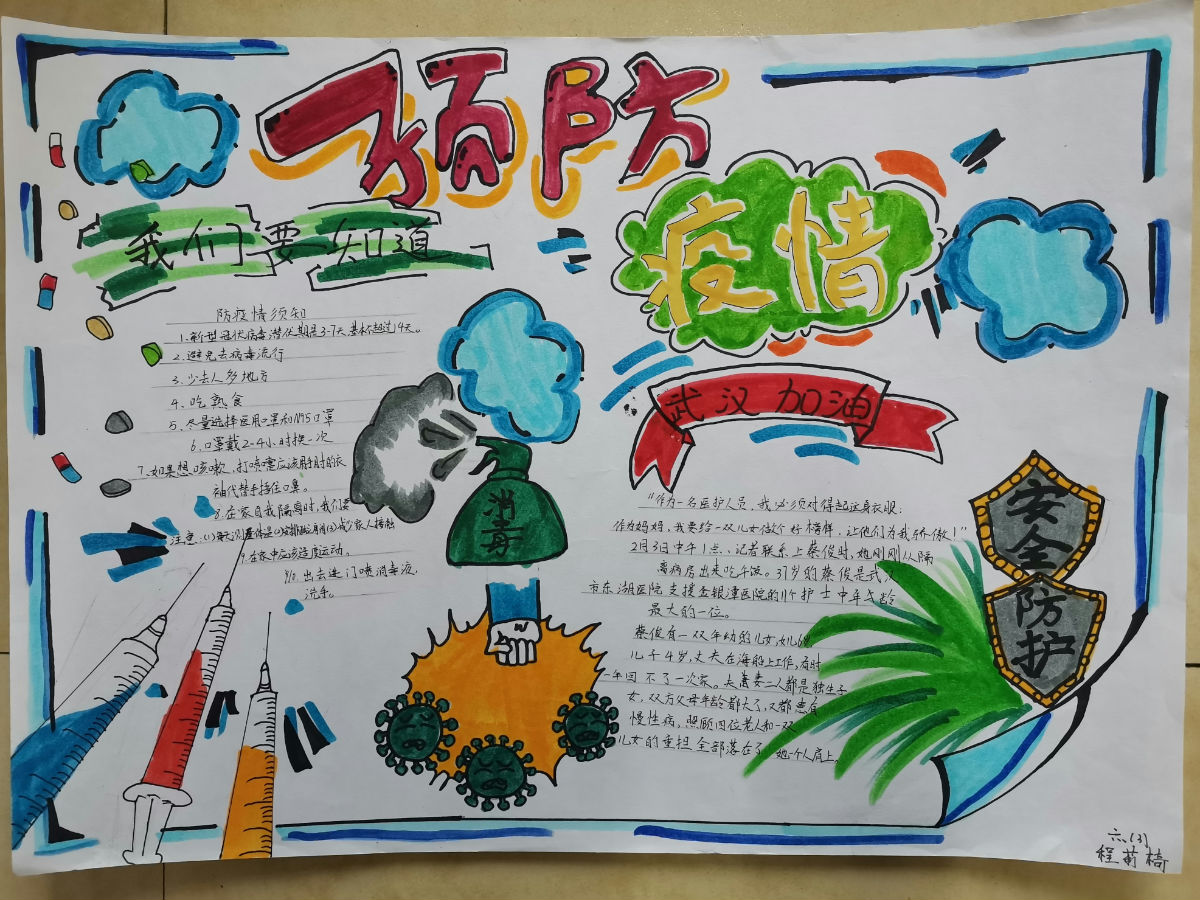 预防
疫情
我们要知道
防疫情须知
1.新型冠状病毒潜伏期是3-7天,基本不超过14天。
2.避免去病毒流行
3.少去人多地方
4.吃熟食
5.尽量选择医用口罩和N95口罩
6.口罩戴2-4小时换一次
7.如果想咳嗽,打喷嚏应该用手肘的衣
袖代替手捂住口鼻。
8.在家自我隔离时,我们要
注意:(1)
9.在家中应该适度运动。
10.出去进门喷消毒液,
洗手。
消毒
武汉加油
"作为一名医护人员,我必须对得起这身衣服;
作为妈妈,我要给一双儿女做个好榜样,让他们为我骄傲!"
2月3日中午1点,记者联系上蔡俊时,她刚刚从隔
离病房出来吃午饭。37岁的蔡俊是武
市东湖医院支援金银潭医院的11个护士中年龄
最大的一位。
蔡俊有一双年幼的儿女,女儿6
儿子4岁,丈夫在海船上工作,有时
一年回不了一次家。夫妻二人都是独生子
女,双方父母年龄都大了,又都患有
慢性病,照顾四位老人和一双
儿女的重担全部落在了她一个人肩上。
安全
防护
六.(3)
程